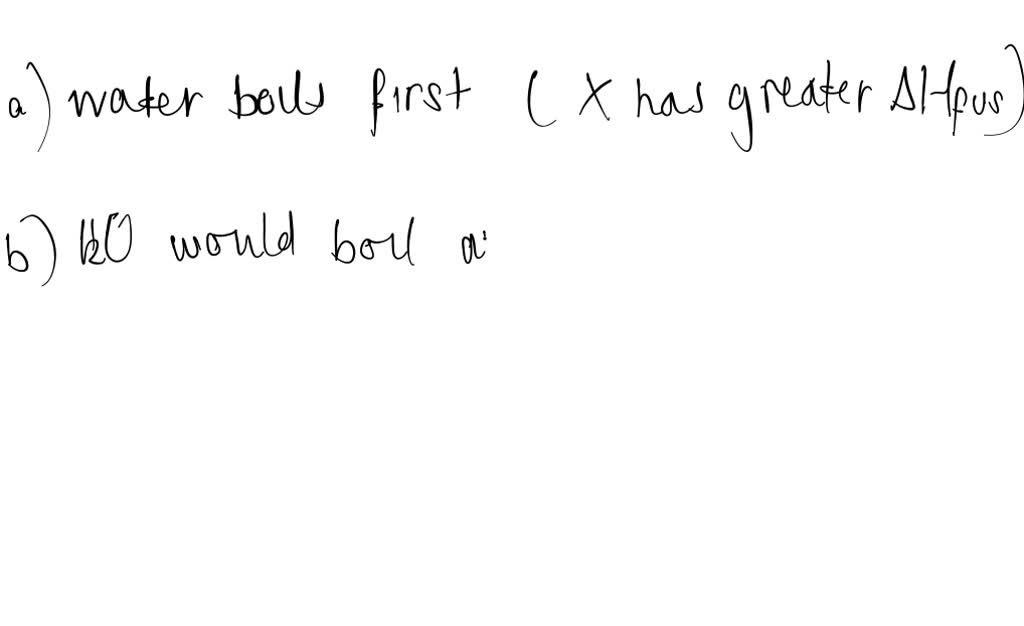 a) water boils first ( X has greater ΔHfus)
b) H2O would boil a